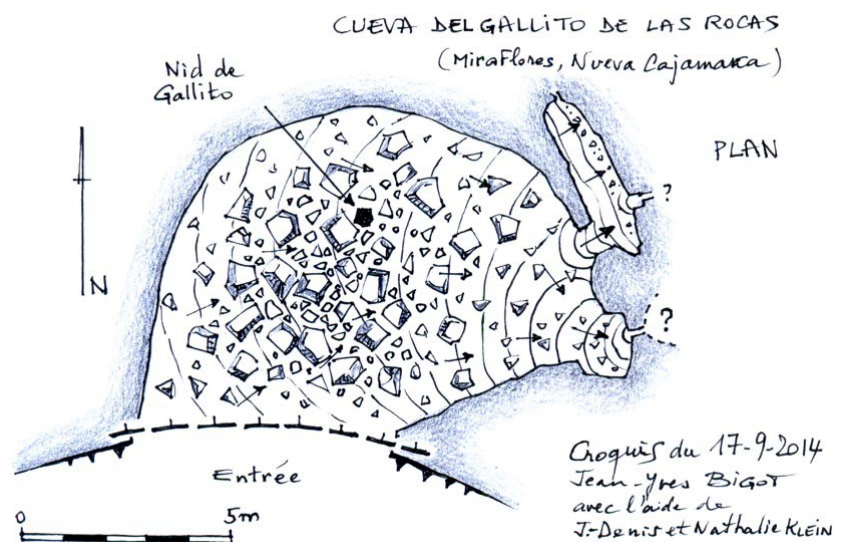 CUEVA DEL GALLITO DE LAS ROCAS
(Miraflores, Nueva Cajamarca)
Nid de
Gallito
PLAN
N
?
?
Entrée
0 5m
Croquis du 17-9-2014
Jean-Yves BIGOT
avec l'aide de
J.-Denis et Nathalie KLEIN